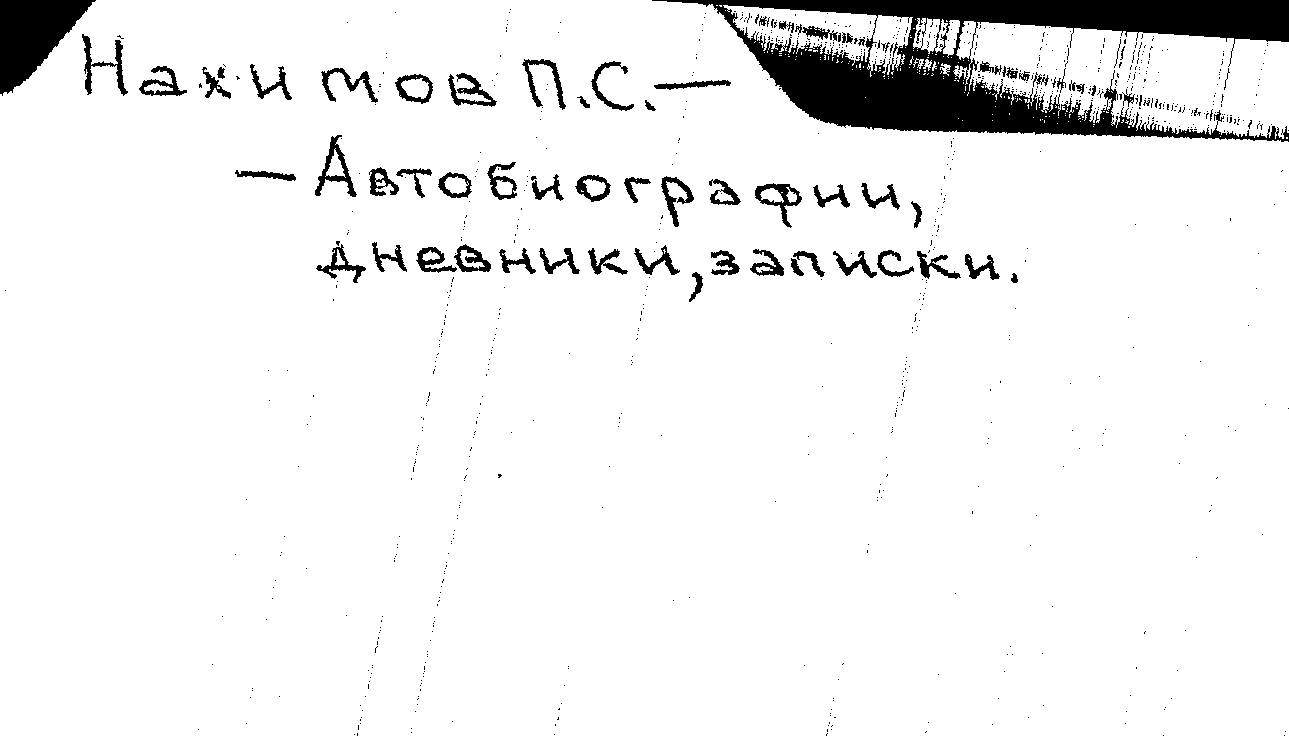 Нахимов П.С.—
— Автобиографии,
дневники, записки.